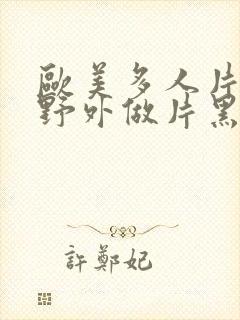 歐美多人片
野外做片黑
許鄭妃